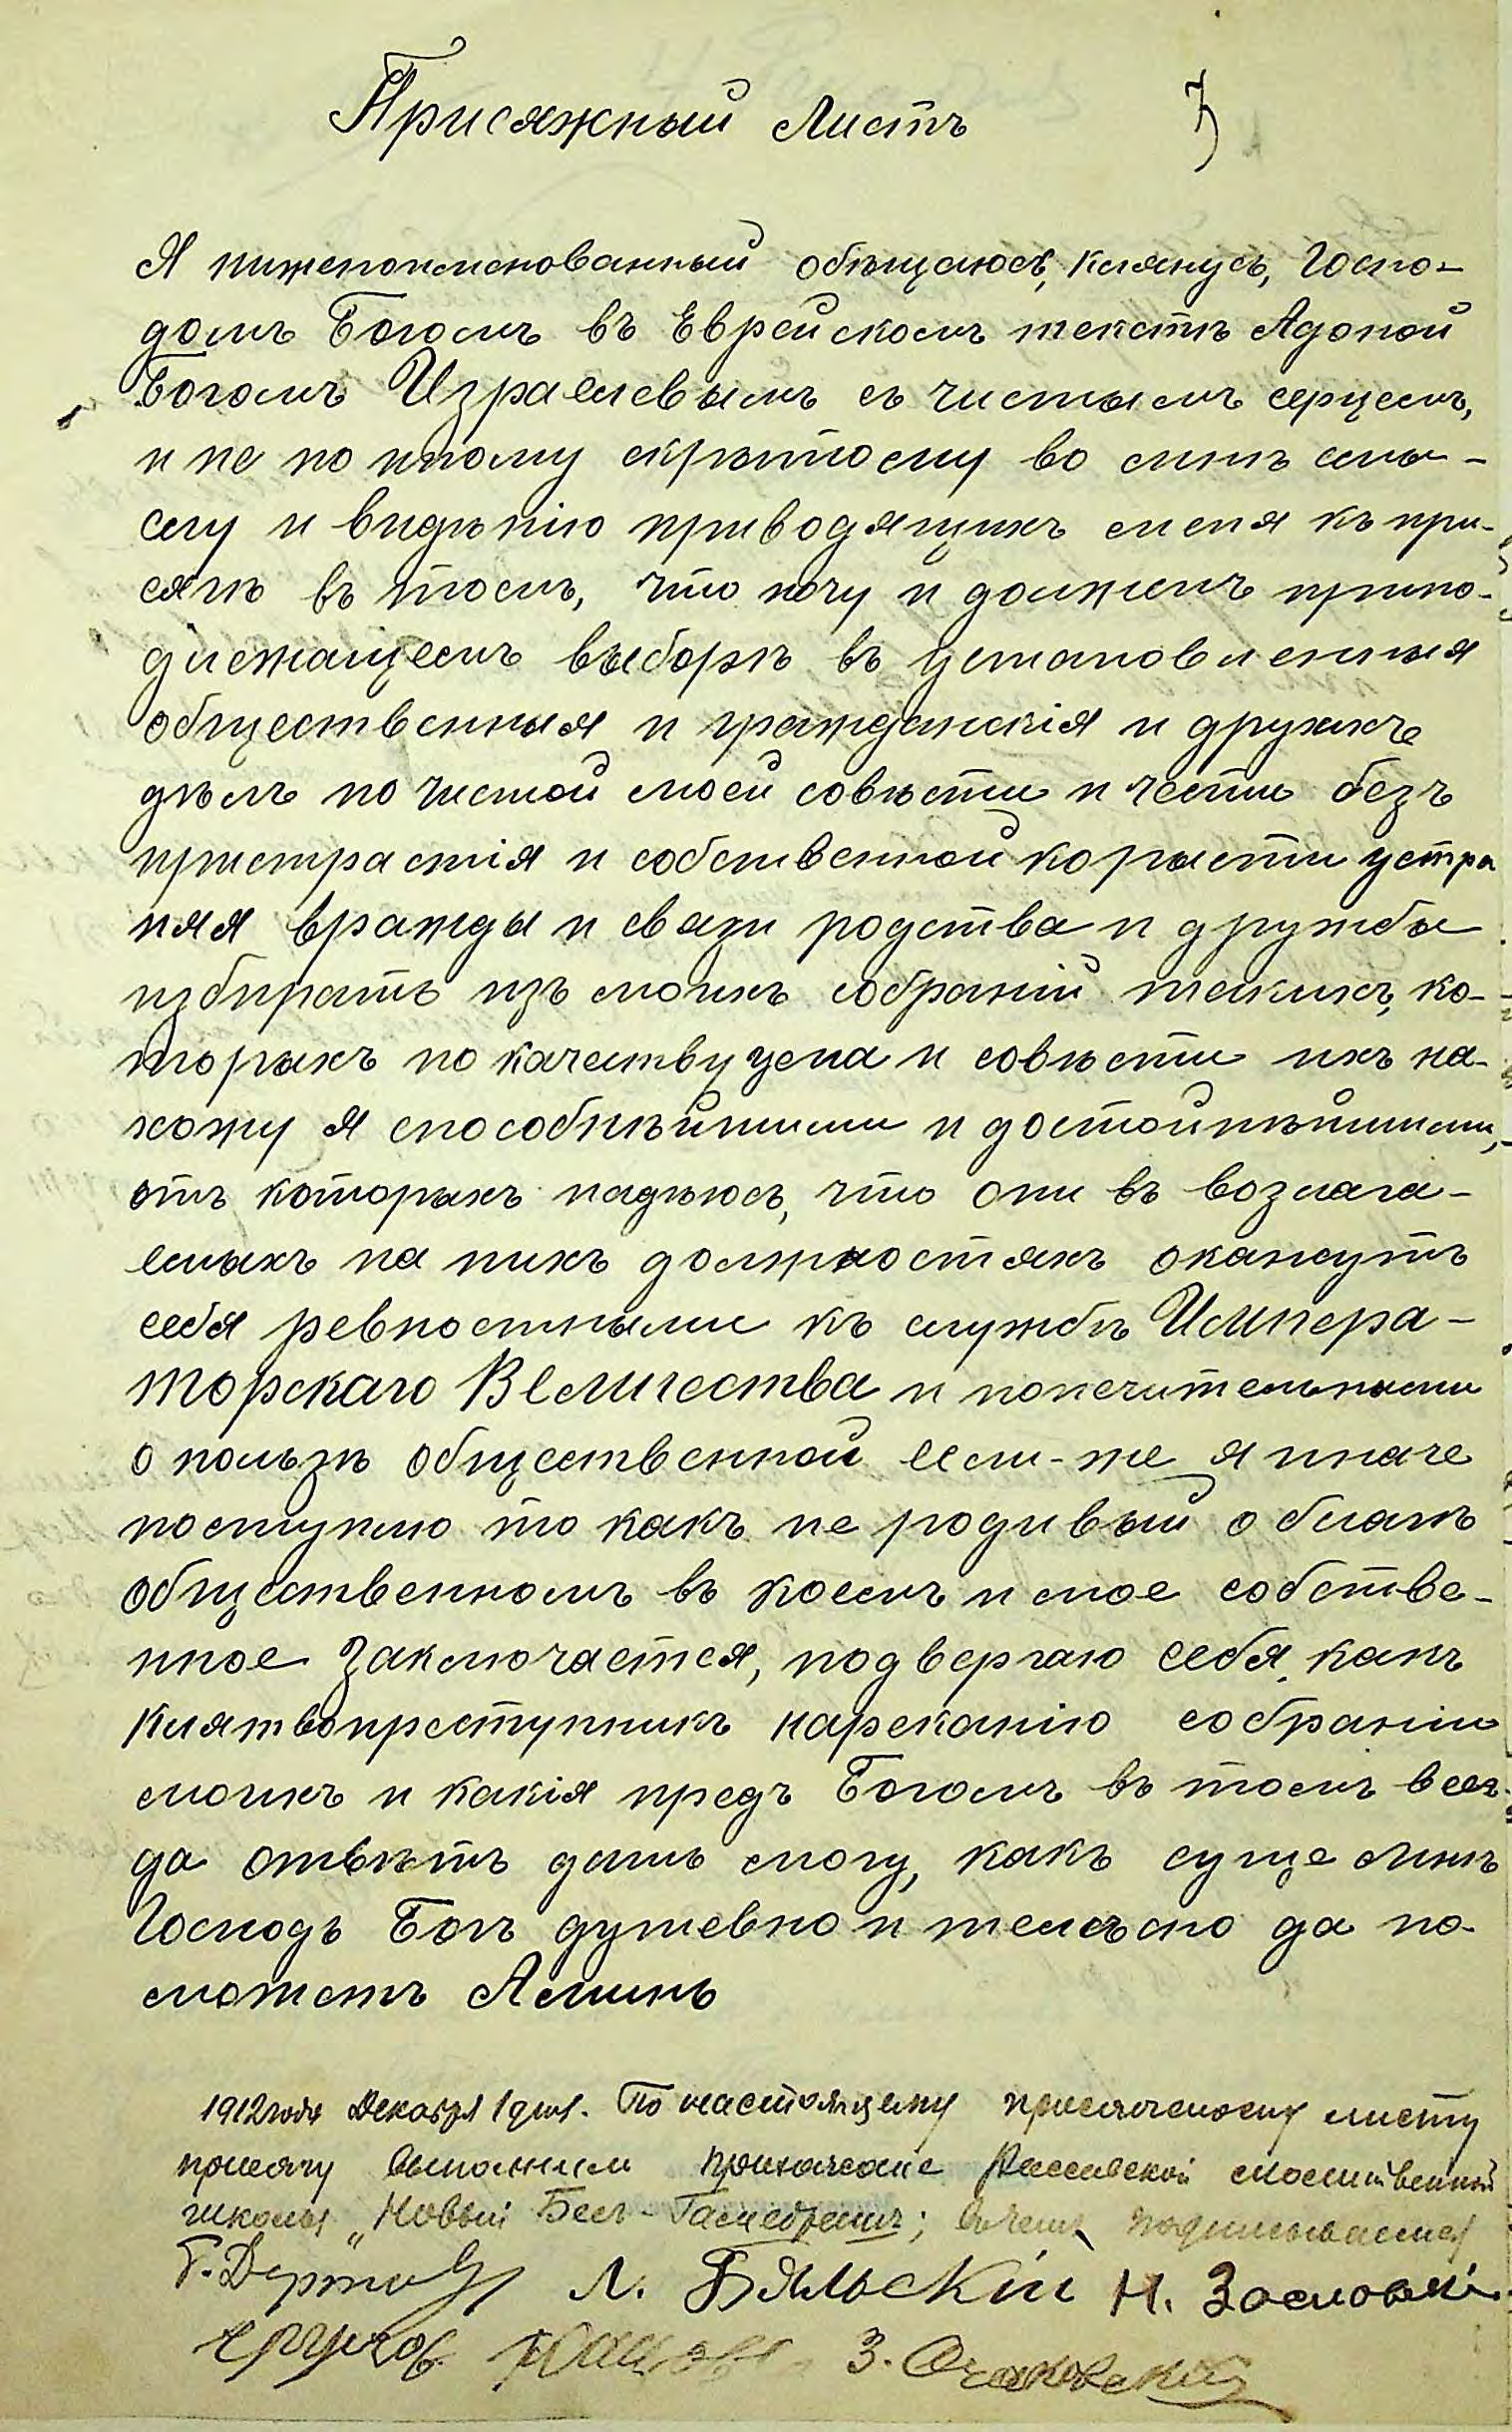 Присяжный Листъ
Я нижепоименованный обѣщаюсь, клянусь, Госпо-
домъ Богомъ въ Еврейскомъ текстѣ Адоной
Богомъ Израелевымъ съ чистымъ серцемъ,
и не по иному скрытому во мнѣ смы-
слу и видѣнію приводящихъ меня къ при-
сягѣ въ томъ, что хочу и долженъ при по-
длежащемъ выборѣ въ установленныя
общественныя и гражданскія и другихъ
дѣлъ по чистой моей совѣсти и чести безъ
пристрастія и собственной корысти устра
няя вражды и связи родства и дружбы
избирать изъ моихъ собраній такихъ, ко-
торыхъ по качеству ума и совѣсти ихъ на-
хожу я способнѣйшими и достойнѣйшими,
отъ которыхъ надѣюсь, что они въ возлага-
емыхъ на нихъ должностяхъ окажутъ
себя ревностными къ службѣ Импера-
торскаго Величества и попечительными
о пользѣ общественной если-же я иначе
поступлю то какъ не родивый о благѣ
общественномъ въ коемъ и мое собстве-
нное заключается, подвергаю себя какъ
клятвопреступникъ нареканію собраніи
моихъ и какія предъ Богомъ въ томъ всег-
да отвѣтъ дать могу, какъ суще мнѣ
Господь Богъ душевно и телѣсно да по-
можетъ Аминь
1912 года Декабря 1 дня. По настоящему присяжному листу
присягу выполнили прихожане Рассавской молитвенной
школы "Новый Бесъ-Гамедрашъ"; въ чемъ подписываемся
Л. Бяльскій Н. Засловскій
З. Очаковскій